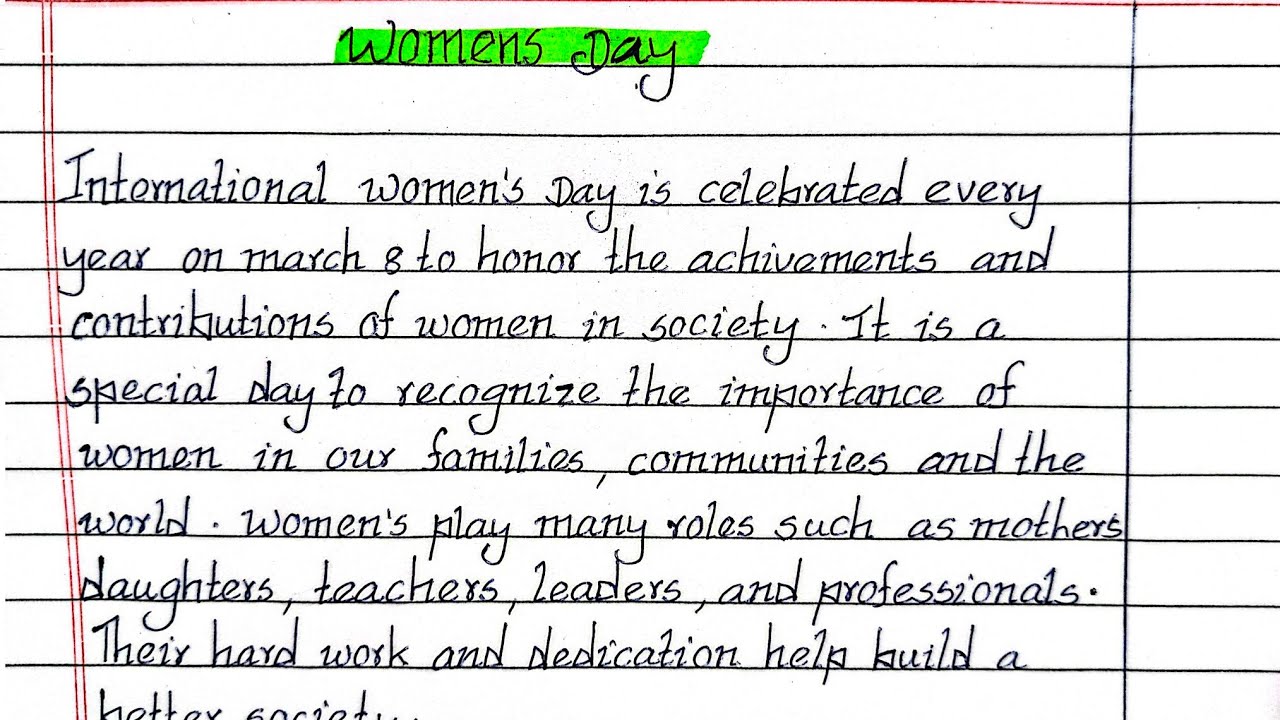 Womens Day
International women's Day is celebrated every
year on march 8 to honor the achivements and
contributions of women in society. It is a
special day to recognize the importance of
women in our families, communities and the
world. women's play many roles such as mothers
daughters, teachers, leaders, and professionals.
Their hard work and dedication help build a
better society.